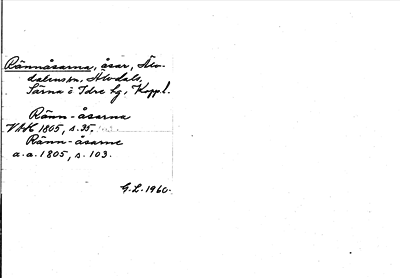 Rännåsarna, åsar, Älv-
dalens sn, Älvdals,
Särna o Idre tg, Kopp. l.
Ränn-åsarna
VAH 1805, s. 35.
Ränn-åsarne
a.a. 1805, s. 103.
G.L. 1960.